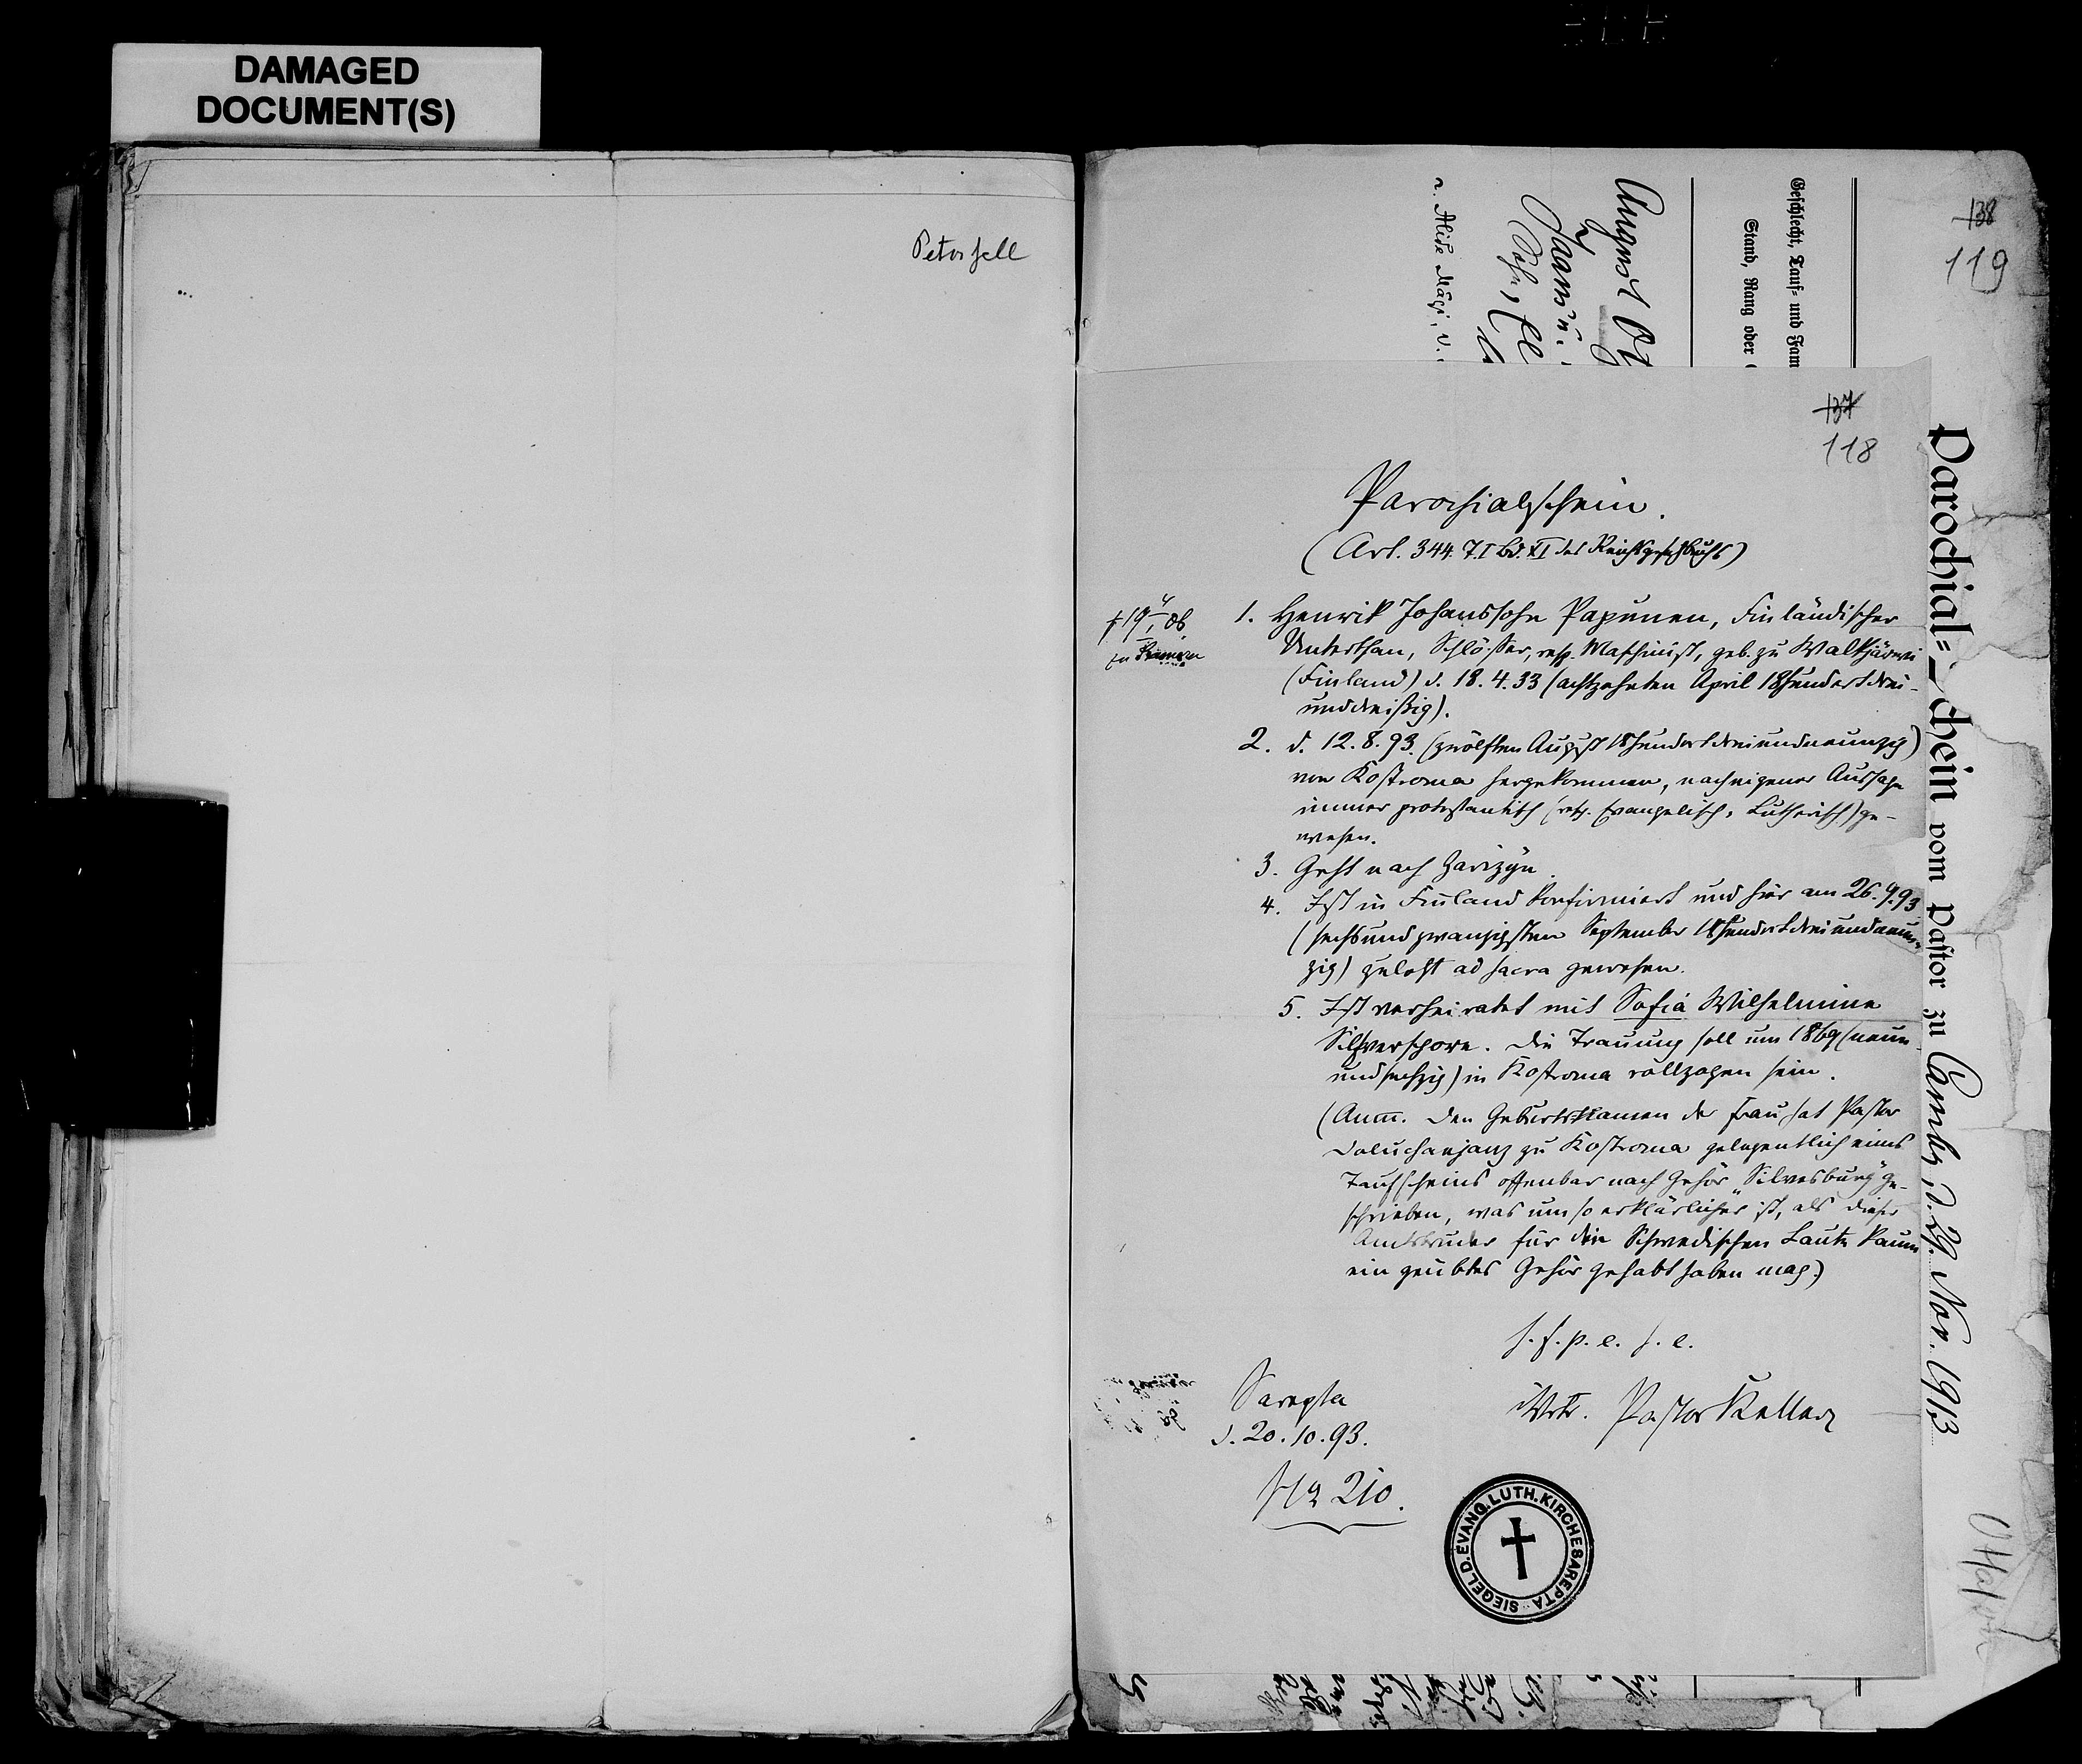 DAMAGED
DOCUMENT(S)
Petersell
138
119
Geschlecht, Tauf- und Fam
Stand, Rang oder
August Ot
Jaan u.
137
118
Parochialschein.
(Art. 344. T.I Bd. XI des Reichsgesetzbuchs)
1. Henrik Johanssohn Papunen, Finländischer
Unterthan, Schlosser, resp. Maschinist, geb. zu Walkjärwi
(Finland) d. 18.4.33 (achtzehnten April 18hundertdrei-
unddreißig).
2. d. 12.8.93. (zwölften August 18hundertdreiundneunzig)
von Kostroma hergekommen, nach eigener Aussage
immer protestantisch (resp. Evangelisch-Lutherisch) ge-
wesen.
3. Geht nach Zarizyn.
4. Ist in Finland konfirmiert und hier am 26.9.93
(sechsundzwanzigsten September 18hundertdreiundneun-
zig) zuletzt ad sacra gewesen.
5. Ist verheiratet mit Sofia Wilhelmine
Die Trauung soll um 1869 (neun-
undsechzig) in Kostroma vollzogen sein.
(Anm. Den Geburtsnamen der Frau hat Pastor
zu Kostroma gelegentlich eines
Taufscheins offenbar nach Gehör "Silvesburg" ge-
schrieben, was um so erklärlicher ist, als dieser
Amtsbruder für die Schwedischen Laute kaum
ein geübtes Gehör gehabt haben mag.)
s. f. p. e. s. e.
Sarepta
d. 20.10.93.
Pastor Keller
No 210.
SIEGEL D. EVANG. LUTH. KIRCHE SAREPTA
Parochial-Schein vom Pastor zu Camby, d. 29. Nov. 1913